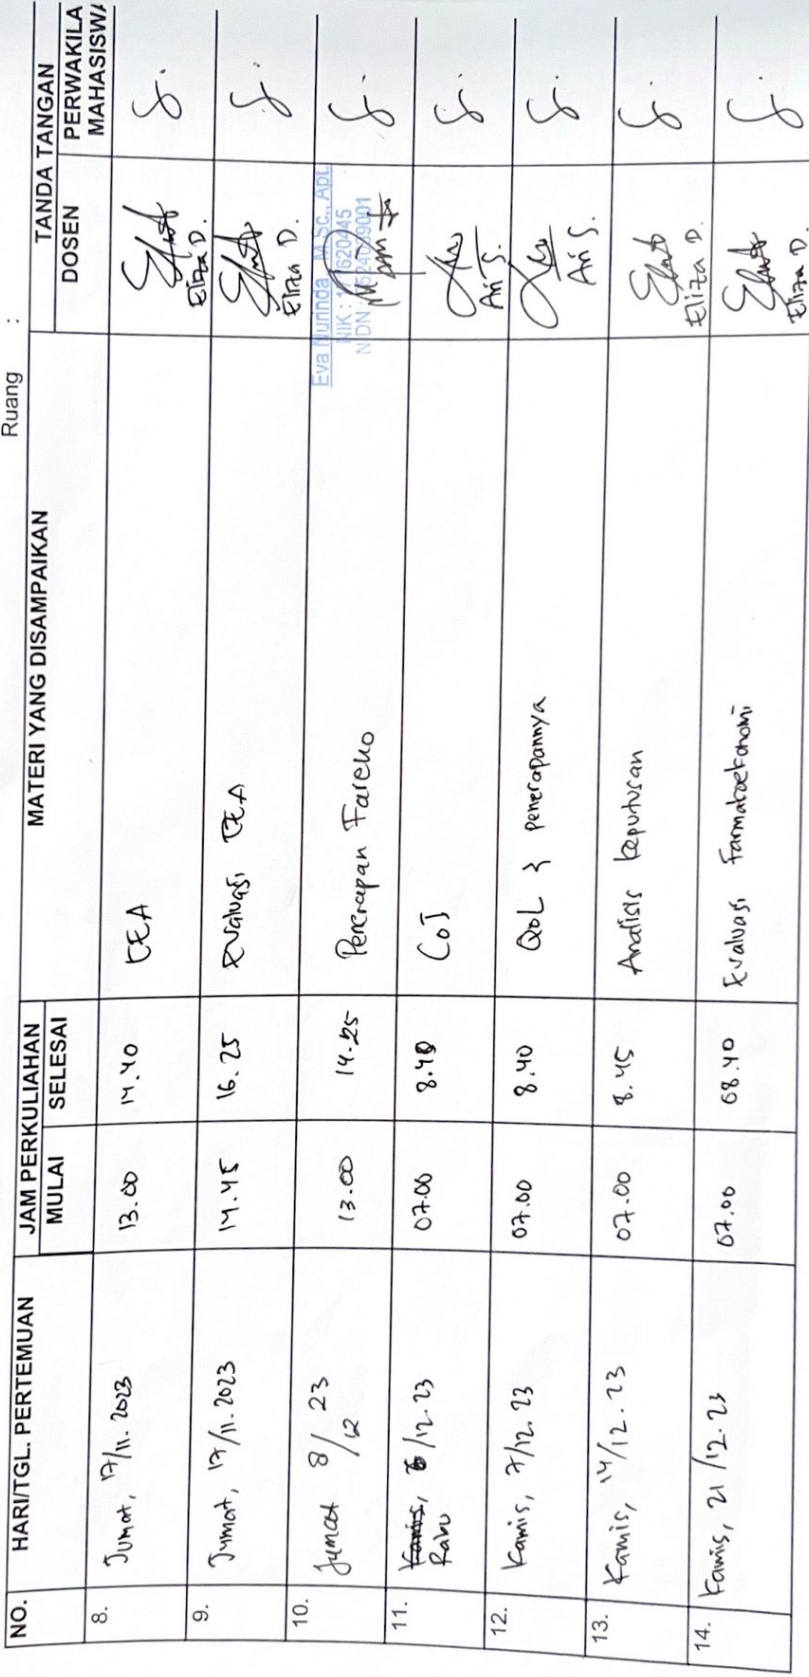 Ruang :
NO. HARI/TGL. PERTEMUAN JAM PERKULIAHAN MATERI YANG DISAMPAIKAN TANDA TANGAN
MULAI SELESAI DOSEN PERWAKILA
MAHASISWA
8. Jumat, 17/11.2023 13.00 14.40 CEA
Eliza D.
9. Jumat, 17/11.2023 14.45 16.25 Evaluasi CEA
Eliza D.
10. Jumat 8/12 23 13.00 14.25 Penerapan Fareko
Eva Nurinda M.Sc., Apt
NIK :
NIDN :
11. Kamis, 6/12.23 07.00 8.40 CoI
Rabu
Ari S.
12. Kamis, 7/12.23 07.00 8.40 QoL & penerapannya
Ari S.
13. Kamis, 14/12.23 07.00 8.45 Analisis keputusan
Eliza D.
14. Kamis, 21/12.23 07.00 08.40 Evaluasi Farmakoekonomi
Eliza D.